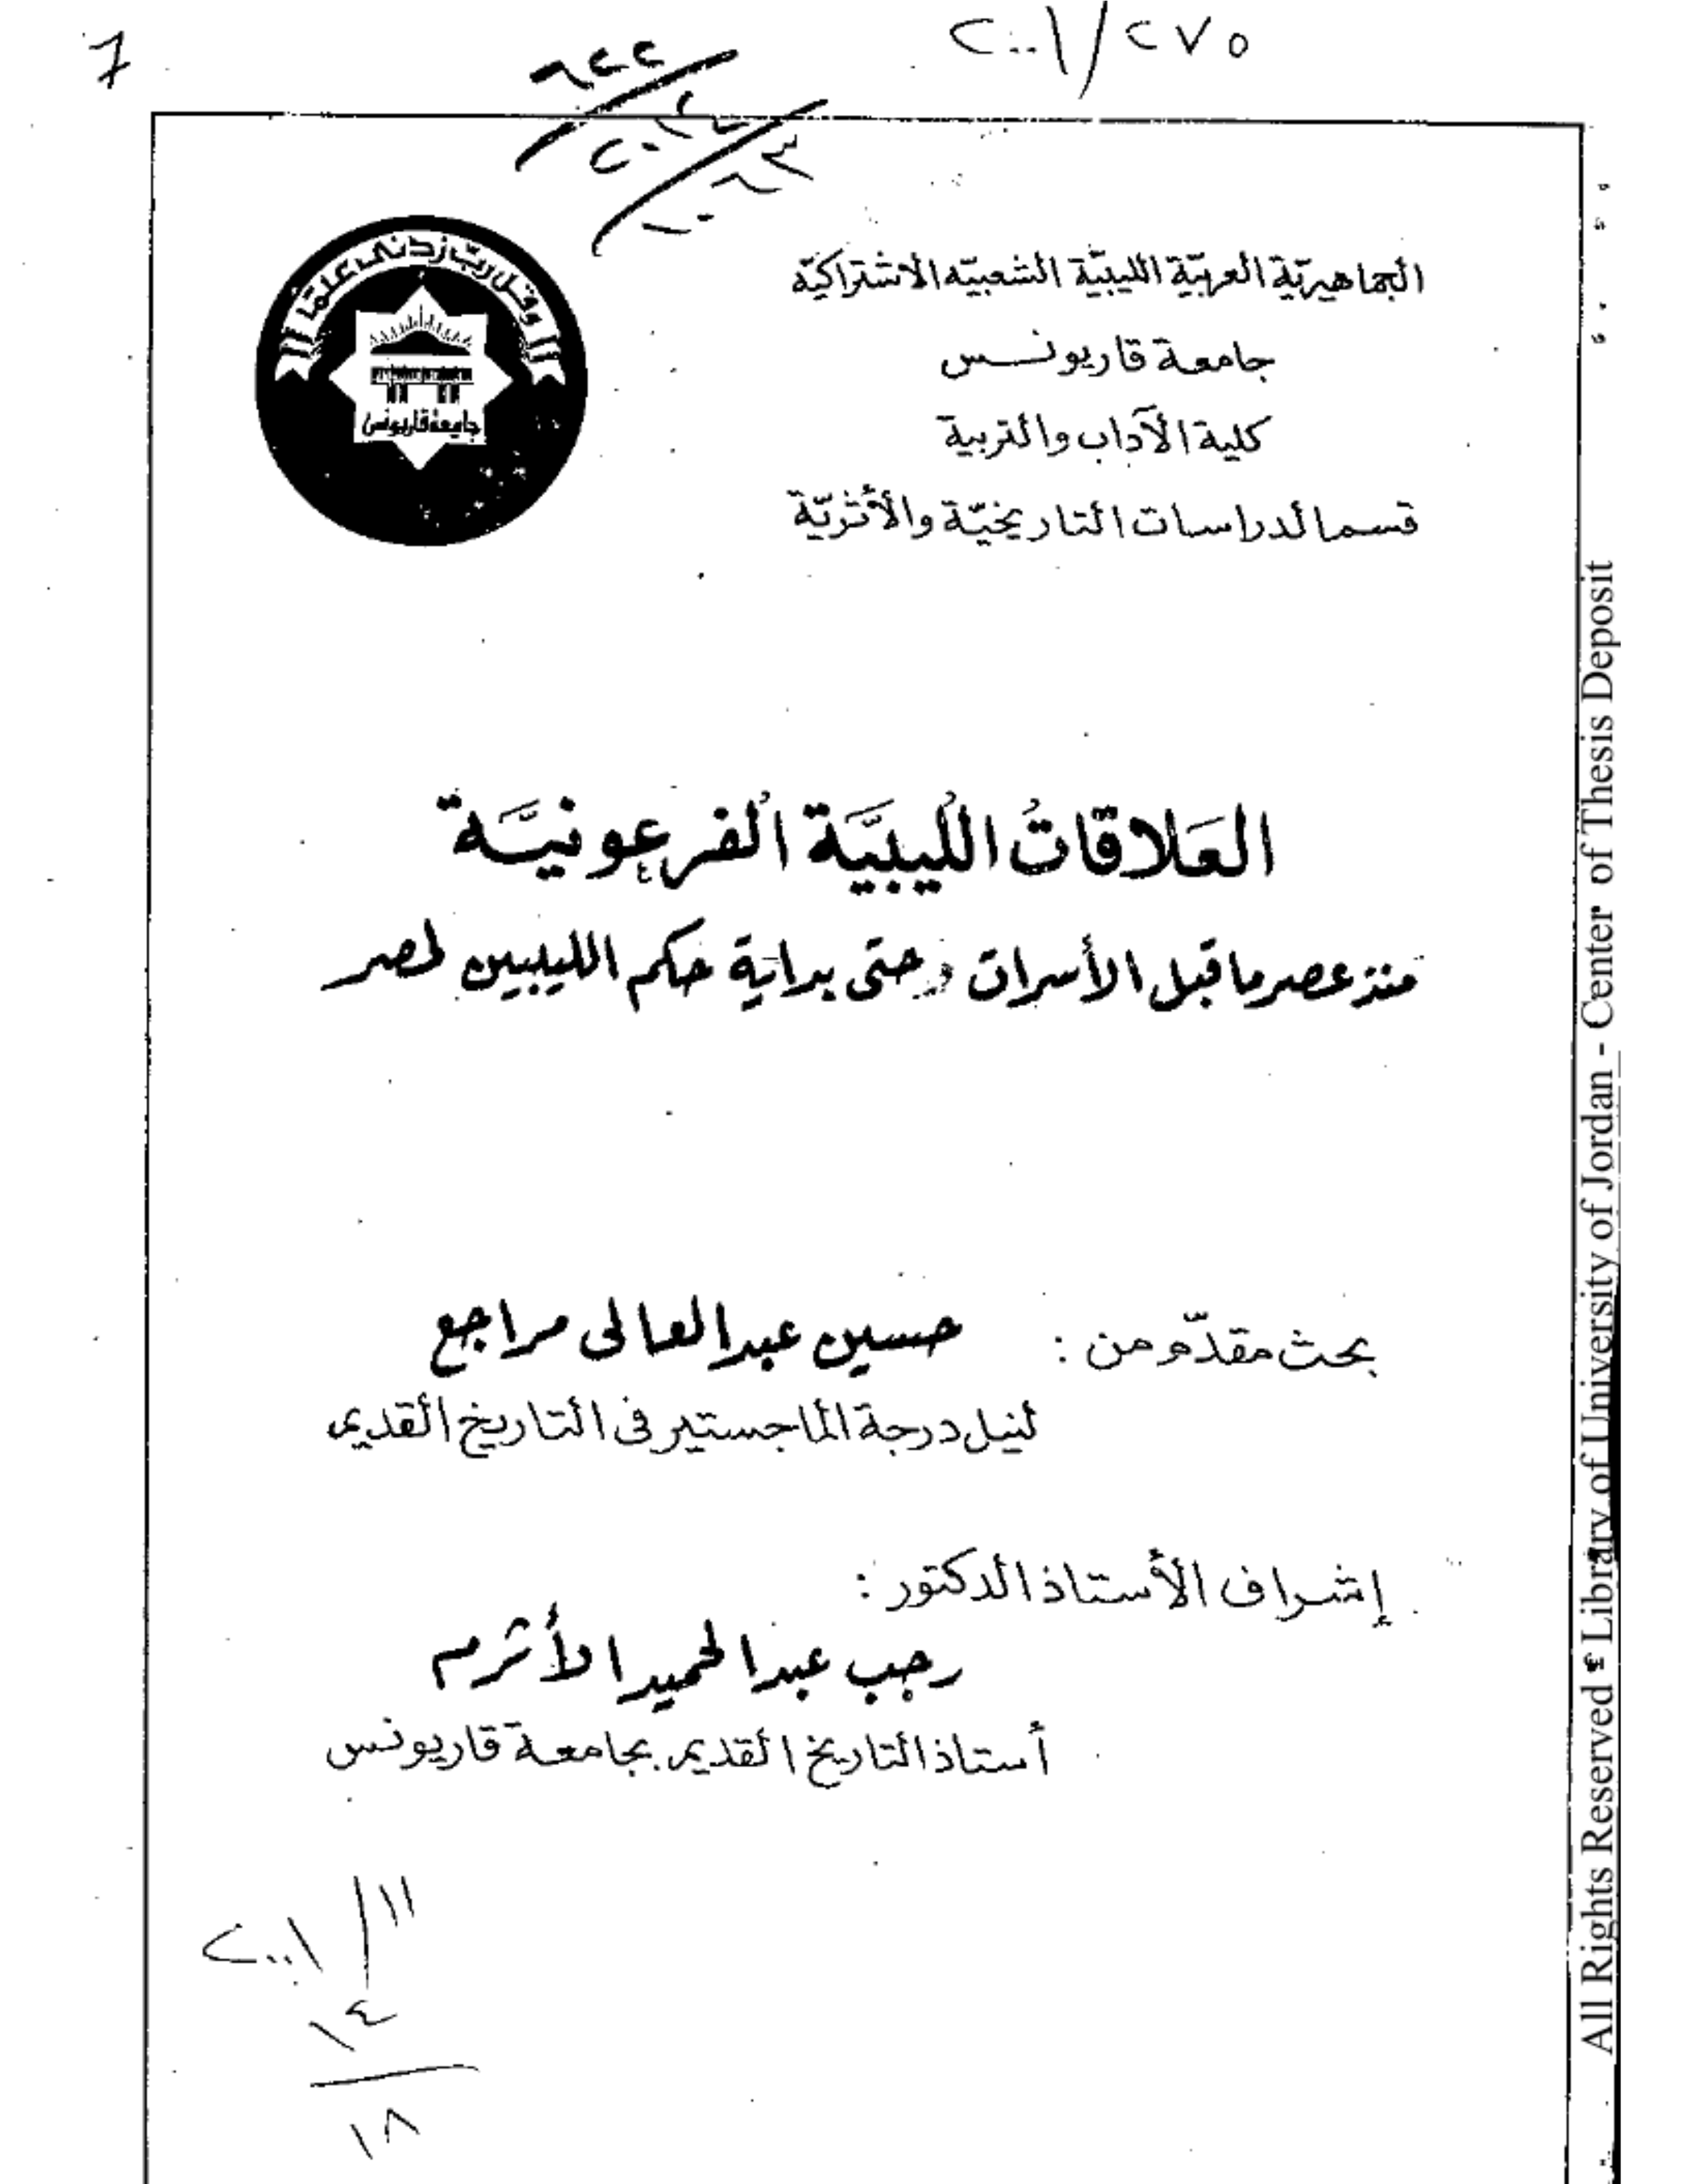 ٢٠٠١/٢٧٥
وقل رب زدني علما
جامعة قاريونس
الجماهيرية العربية الليبية الشعبية الاشتراكية
جامعة قاريونس
كلية الآداب والتربية
قسم الدراسات التاريخية والأثرية
العلاقات الليبية الفرعونية
منذ عصر ما قبل الأسرات وحتى بداية حكم الليبيين لمصر
بحث مقدم من : حسين عبد العالى مراجع
لنيل درجة الماجستير فى التاريخ القديم
إشراف الأستاذ الدكتور :
رجب عبد الحميد الأثرم
أستاذ التاريخ القديم بجامعة قاريونس
٢٠٠١/١١
١٤
١٨
All Rights Reserved - Library of University of Jordan - Center of Thesis Deposit